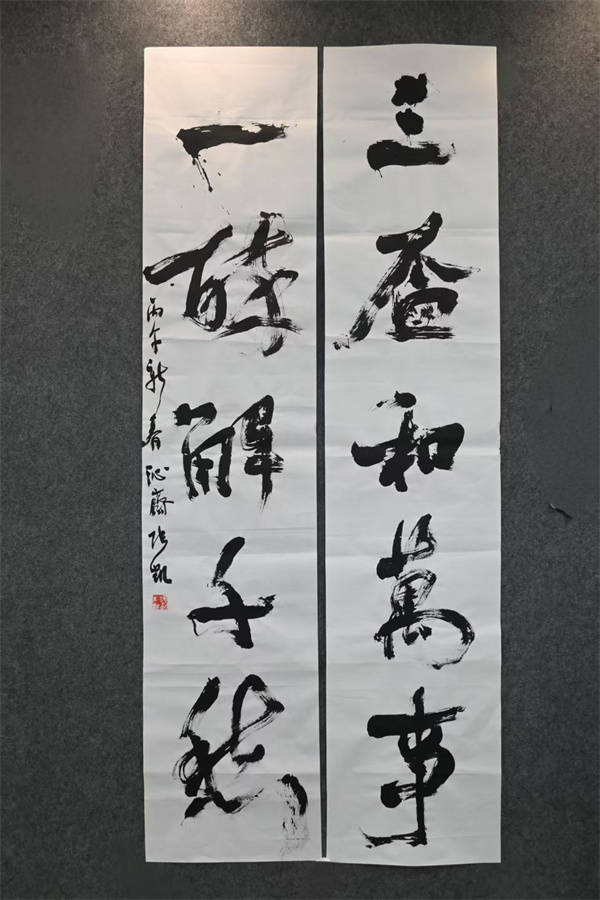 三盃和萬事
一醉解千愁
丙午新春沁齋张凱